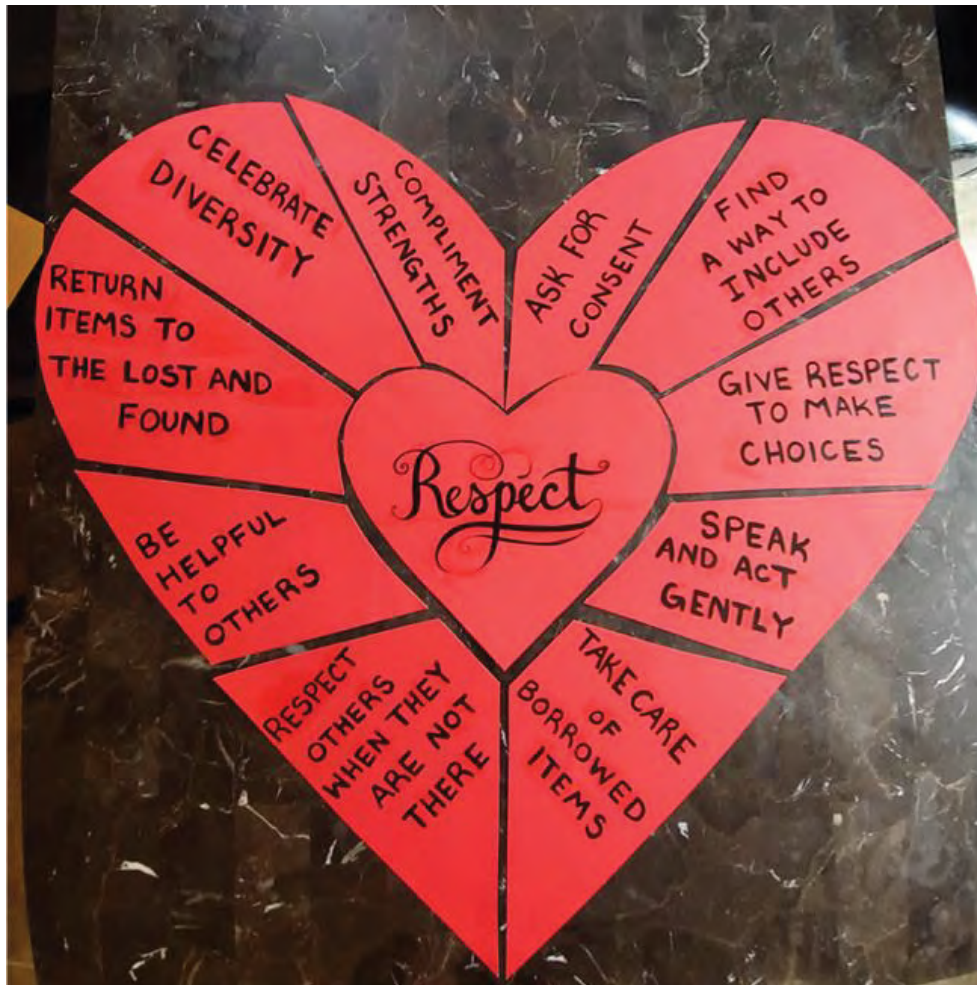 CELEBRATE
DIVERSITY
COMPLIMENT
STRENGTHS
ASK FOR
CONSENT
FIND
A WAY TO
INCLUDE
OTHERS
RETURN
ITEMS TO
THE LOST AND
FOUND
Respect
GIVE RESPECT
TO MAKE
CHOICES
BE
HELPFUL
TO
OTHERS
SPEAK
AND ACT
GENTLY
RESPECT
OTHERS
WHEN THEY
ARE NOT
THERE
TAKE CARE
OF
BORROWED
ITEMS